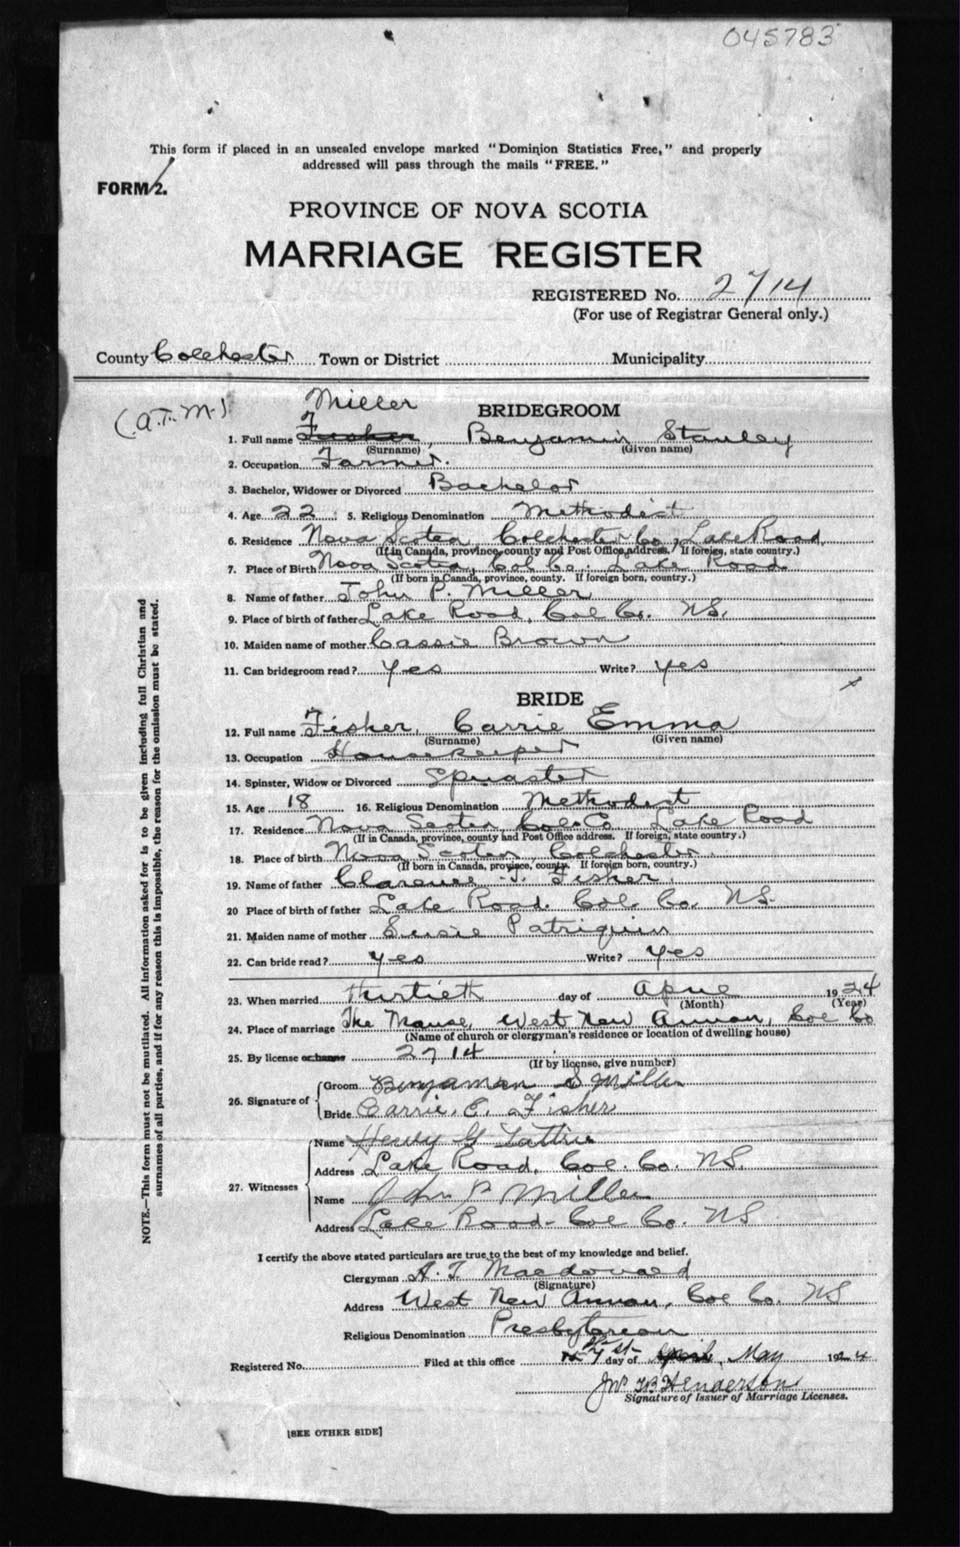 045783
This form if placed in an unsealed envelope marked "Dominion Statistics Free," and properly
addressed will pass through the mails "FREE."
FORM 2.
PROVINCE OF NOVA SCOTIA
MARRIAGE REGISTER
REGISTERED No. 2714
(For use of Registrar General only.)
County Colchester Town or District Municipality
(A.T.M.)
Miller
BRIDEGROOM
1. Full name Fisher, Benjamin Stanley
(Surname) (Given name)
2. Occupation Farmer.
3. Bachelor, Widower or Divorced Bachelor
4. Age 22 5. Religious Denomination Methodist
6. Residence Nova Scotia, Colchester Co, Lake Road,
(If in Canada, province, county and Post Office address. If foreign, state country.)
7. Place of Birth Nova Scotia, Col Co. Lake Road
(If born in Canada, province, county. If foreign born, country.)
8. Name of father John P. Miller
9. Place of birth of father Lake Road, Col Co. N.S.
10. Maiden name of mother Cassie Brown
11. Can bridegroom read? yes Write? yes
BRIDE
12. Full name Fisher, Carrie Emma
(Surname) (Given name)
13. Occupation Housekeeper
14. Spinster, Widow or Divorced Spinster
15. Age 18 16. Religious Denomination Methodist
17. Residence Nova Scotia Col. Co. Lake Road
(If in Canada, province, county and Post Office address. If foreign, state country.)
18. Place of birth Nova Scotia, Colchester
(If born in Canada, province, county. If foreign born, country.)
19. Name of father Clarence Fisher
20 Place of birth of father Lake Road. Col. Co. N.S.
21. Maiden name of mother Susie Patriquin
22. Can bride read? yes Write? yes
23. When married thirtieth day of April 1924
(Month) (Year)
24. Place of marriage The Manse, West New Annan, Col Co
(Name of church or clergyman's residence or location of dwelling house)
25. By license or banns 2714
(If by license, give number)
26. Signature of
Groom Benjamin S Miller
Bride Carrie. E. Fisher
27. Witnesses
Name Henry G Tattrie
Address Lake Road, Col. Co. N.S.
Name John P Miller
Address Lake Road - Col Co. NS
I certify the above stated particulars are true to the best of my knowledge and belief.
Clergyman A. T. Macdonald
(Signature)
Address West New Annan, Col Co. NS
Religious Denomination Presbyterian
Registered No. Filed at this office day of April, May 1924
Jno TB Henderson
Signature of Issuer of Marriage Licenses.
[SEE OTHER SIDE]
NOTE.—This form must not be mutilated. All information asked for is to be given including full Christian and
surnames of all parties, and if for any reason this is impossible, the reason for the omission must be stated.